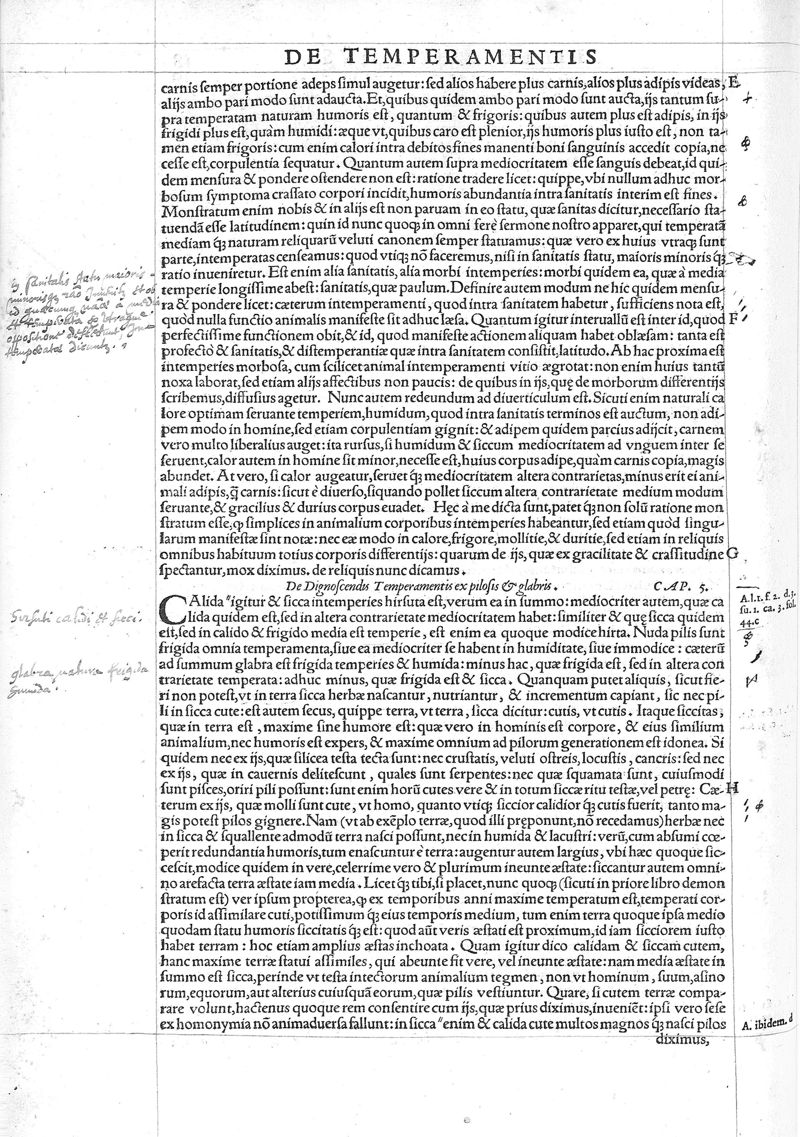 DE TEMPERAMENTIS
carnis semper portione adeps simul augetur: sed alios habere plus carnis, alios plus adipis videas, E
alijs ambo pari modo sunt adaucta. Et, quibus quidem ambo pari modo sunt aucta, ijs tantum su-
pra temperatam naturam humoris est, quantum & frigoris: quibus autem plus est adipis, in ijs
frigidi plus est, quàm humidi: æque vt, quibus caro est plenior, ijs humoris plus iusto est, non ta-
men etiam frigoris: cum enim calori intra debitos fines manenti boni sanguinis accedit copia, ne
cesse est, corpulentia sequatur. Quantum autem supra mediocritatem esse sanguis debeat, id qui-
dem mensura & pondere ostendere non est: ratione tradere licet: quippe, vbi nullum adhuc mor-
bosum symptoma crassato corpori incidit, humoris abundantia intra sanitatis interim est fines.
Monstratum enim nobis & in alijs est non paruam in eo statu, quæ sanitas dicitur, necessario sta-
tuendā esse latitudinem: quin id nunc quoq; in omni ferè sermone nostro apparet, qui temperatā
mediam q́; naturam reliquarū veluti canonem semper statuamus: quæ vero ex huius vtraq; sunt
parte, intemperatas censeamus: quod vtiq; nō faceremus, nisi in sanitatis statu, maioris minoris q́;
ratio inueniretur. Est enim alia sanitatis, alia morbi intemperies: morbi quidem ea, quæ à media
temperie longissime abest: sanitatis, quæ paulum. Definire autem modum ne hic quidem mensu-
ra & pondere licet: cæterum intemperamenti, quod intra sanitatem habetur, sufficiens nota est,
quòd nulla functio animalis manifeste sit adhuc læsa. Quantum igitur interuallū est inter id, quod F
perfectissime functionem obit, & id, quod manifeste actionem aliquam habet oblæsam: tanta est
profectò & sanitatis, & distemperantiæ quæ intra sanitatem consistit, latitudo. Ab hac proxima est
intemperies morbosa, cum scilicet animal intemperamenti vitio ægrotat: non enim huius tantū
noxa laborat, sed etiam alijs affectibus non paucis: de quibus in ijs, quę de morborum differentijs
scribemus, diffusius agetur. Nunc autem redeundum ad diuerticulum est. Sicuti enim naturali ca
lore optimam seruante temperiem, humidum, quod intra sanitatis terminos est auctum, non adi-
pem modo in homine, sed etiam corpulentiam gignit: & adipem quidem parcius adijcit, carnem
vero multo liberalius auget: ita rursus, si humidum & siccum mediocritatem ad vnguem inter se
seruent, calor autem in homine sit minor, necesse est, huius corpus adipe, quàm carnis copia, magis
abundet. At vero, si calor augeatur, seruet q́; mediocritatem altera contrarietas, minus erit ei ani-
mali adipis, q̄ carnis: sicut è diuerso, siquando pollet siccum altera contrarietate medium modum
seruante, & gracilius & durius corpus euadet. Hęc à me dicta sunt, patet q́; non solū ratione mon
stratum esse, ꝙ simplices in animalium corporibus intemperies habeantur, sed etiam quòd singu-
larum manifestæ sint notæ: nec eæ modo in calore, frigore, mollitie, & duritie, sed etiam in reliquis
omnibus habituum totius corporis differentijs: quarum de ijs, quæ ex gracilitate & crassitudine G
spectantur, mox diximus. de reliquis nunc dicamus.
De Dignoscendis Temperamentis ex pilosis & glabris. CAP. 5.
CAlida "igitur & sicca intemperies hirsuta est, verum ea in summo: mediocriter autem, quæ ca
lida quidem est, sed in altera contrarietate mediocritatem habet: similiter & quę sicca quidem
est, sed in calido & frigido media est temperie, est enim ea quoque modice hirta. Nuda pilis sunt
frigida omnia temperamenta, siue ea mediocriter se habent in humiditate, siue immodice: cæterū
ad summum glabra est frigida temperies & humida: minus hac, quæ frigida est, sed in altera con
trarietate temperata: adhuc minus, quæ frigida est & sicca. Quanquam putet aliquis, sicut fie-
ri non potest, vt in terra sicca herbæ nascantur, nutriantur, & incrementum capiant, sic nec pi-
li in sicca cute: est autem secus, quippe terra, vt terra, sicca dicitur: cutis, vt cutis. Itaque siccitas,
quæ in terra est, maxime sine humore est: quæ vero in hominis est corpore, & eius similium
animalium, nec humoris est expers, & maxime omnium ad pilorum generationem est idonea. Si
quidem nec ex ijs, quæ silicea testa tecta sunt: nec crustatis, veluti ostreis, locustis, cancris: sed nec
ex ijs, quæ in cauernis delitescunt, quales sunt serpentes: nec quæ squamata sunt, cuiusmodi
sunt pisces, oriri pili possunt: sunt enim horū cutes vere & in totum siccæ ritu testæ, vel petrę: Cæ- H
terum ex ijs, quæ molli sunt cute, vt homo, quanto vtiq; siccior calidior q́; cutis fuerit, tanto ma-
gis potest pilos gignere. Nam (vt ab exēplo terræ, quod illi pręponunt, nō recedamus) herbæ nec
in sicca & squallente admodū terra nasci possunt, nec in humida & lacustri: verū, cum absumi cœ-
perit redundantia humoris, tum enascuntur è terra: augentur autem largius, vbi hæc quoque sic-
cescit, modice quidem in vere, celerrime vero & plurimum ineunte æstate: siccantur autem omni-
no arefacta terra æstate iam media. Licet q́; tibi, si placet, nunc quoq; (sicuti in priore libro demon
stratum est) ver ipsum propterea, ꝙ ex temporibus anni maxime temperatum est, temperati cor-
poris id assimilare cuti, potissimum q́; eius temporis medium, tum enim terra quoque ipsa medio
quodam statu humoris siccitatis q́; est: quod aūt veris æstati est proximum, id iam sicciorem iusto
habet terram: hoc etiam amplius æstas inchoata. Quam igitur dico calidam & siccam cutem,
hanc maxime terræ statui assimiles, qui abeunte fit vere, vel ineunte æstate: nam media æstate in
summo est sicca, perinde vt testa intectorum animalium tegmen, non vt hominum, suum, asino
rum, equorum, aut alterius cuiusquā eorum, quæ pilis vestiuntur. Quare, si cutem terræ compa-
rare volunt, hactenus quoque rem consentire cum ijs, quæ prius diximus, inueniēt: ipsi vero sese
ex homonymia nō animaduersa fallunt: in sicca "enim & calida cute multos magnos q́; nasci pilos
diximus,
Hirsuti calidi et sicci.
glabra natura frigida
humida.
A. l. 1. f. 2. d. 3.
su. 1. ca. 3. fol.
44. c
A. ibidem. d